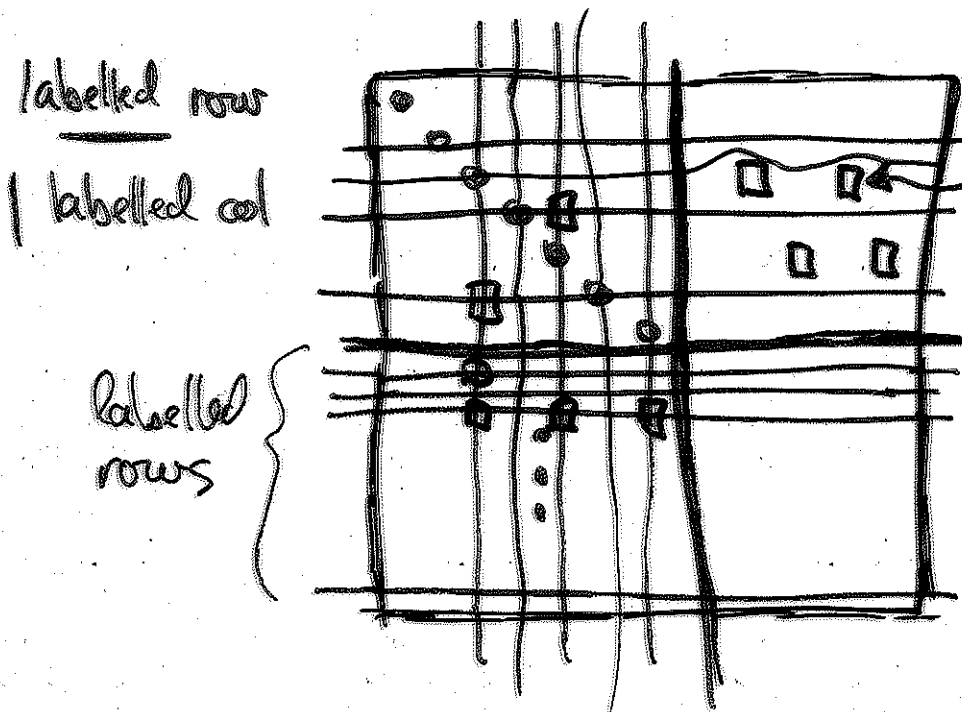 labelled rows
| labelled col
labelled
rows